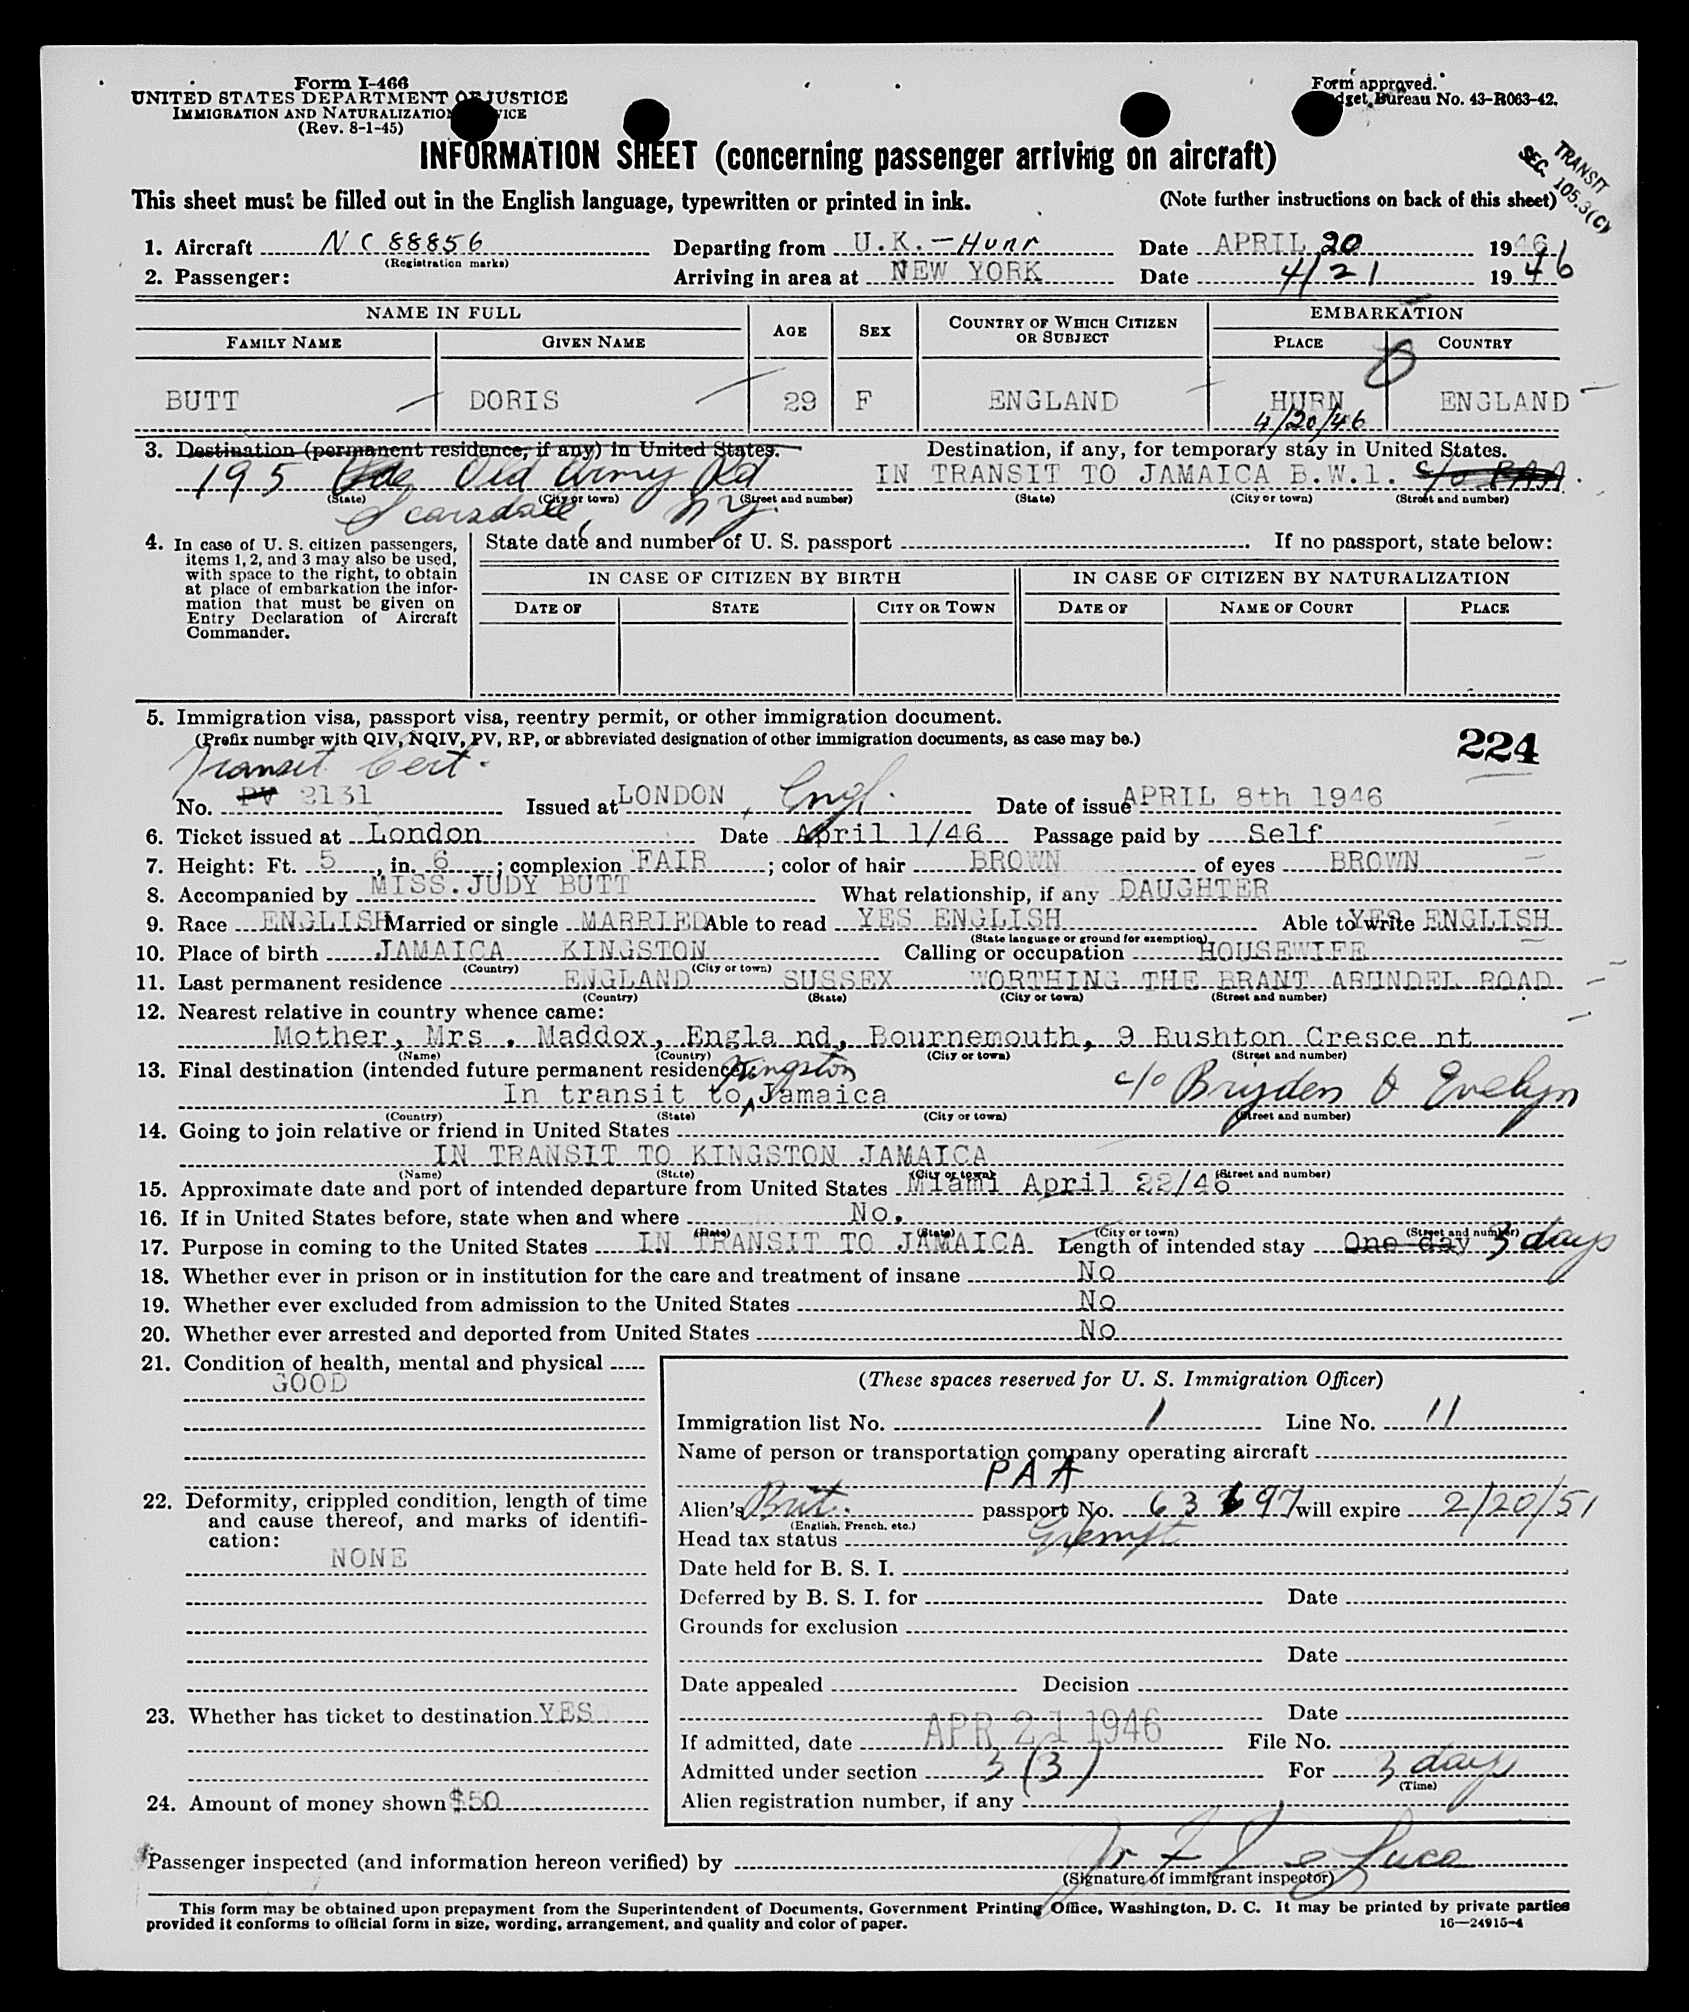 Form I-466
UNITED STATES DEPARTMENT OF JUSTICE
IMMIGRATION AND NATURALIZATION SERVICE
(Rev. 8-1-45)
Form approved.
Budget Bureau No. 43-R063-42.
INFORMATION SHEET (concerning passenger arriving on aircraft)
TRANSIT
SEC. 105.3(C)
This sheet must be filled out in the English language, typewritten or printed in ink. (Note further instructions on back of this sheet)
1. Aircraft NC 88856 Departing from U.K. - Hurn Date APRIL 20 1946
(Registration marks)
2. Passenger: Arriving in area at NEW YORK Date 4/21 1946
NAME IN FULL AGE SEX COUNTRY OF WHICH CITIZEN OR SUBJECT EMBARKATION
FAMILY NAME GIVEN NAME PLACE COUNTRY
BUTT DORIS 29 F ENGLAND HURN ENGLAND
4/20/46
3. Destination (permanent residence, if any) in United States. Destination, if any, for temporary stay in United States.
195 Old Army Rd IN TRANSIT TO JAMAICA B.W.1. c/o PAA
(State) (City or town) (Street and number) (State) (City or town) (Street and number)
Scarsdale, N.Y.
4. In case of U. S. citizen passengers, items 1, 2, and 3 may also be used, with space to the right, to obtain at place of embarkation the information that must be given on Entry Declaration of Aircraft Commander.
State date and number of U. S. passport If no passport, state below:
IN CASE OF CITIZEN BY BIRTH IN CASE OF CITIZEN BY NATURALIZATION
DATE OF STATE CITY OR TOWN DATE OF NAME OF COURT PLACE
5. Immigration visa, passport visa, reentry permit, or other immigration document.
(Prefix number with QIV, NQIV, PV, RP, or abbreviated designation of other immigration documents, as case may be.)
224
Transit Cert.
No. PV 2131 Issued at LONDON, Engl. Date of issue APRIL 8th 1946
6. Ticket issued at London Date April 1/46 Passage paid by Self
7. Height: Ft. 5, in. 6; complexion FAIR; color of hair BROWN of eyes BROWN
8. Accompanied by MISS. JUDY BUTT What relationship, if any DAUGHTER
9. Race ENGLISH Married or single MARRIED Able to read YES ENGLISH Able to write YES ENGLISH
(State language or ground for exemption)
10. Place of birth JAMAICA KINGSTON Calling or occupation HOUSEWIFE
(Country) (City or town)
11. Last permanent residence ENGLAND SUSSEX WORTHING THE BRANT ARUNDEL ROAD
(Country) (State) (City or town) (Street and number)
12. Nearest relative in country whence came:
Mother, Mrs . Maddox, Engla nd, Bournemouth, 9 Rushton Cresce nt
(Name) (Country) (City or town) (Street and number)
13. Final destination (intended future permanent residence):
In transit to Kingston Jamaica c/o Bryden & Evelyn
(Country) (State) (City or town) (Street and number)
14. Going to join relative or friend in United States
IN TRANSIT TO KINGSTON JAMAICA
(Name) (State) (City or town) (Street and number)
15. Approximate date and port of intended departure from United States Miami April 22/46
16. If in United States before, state when and where No.
(Date) (State) (City or town) (Street and number)
17. Purpose in coming to the United States IN TRANSIT TO JAMAICA Length of intended stay One day 3 days
18. Whether ever in prison or in institution for the care and treatment of insane No
19. Whether ever excluded from admission to the United States No
20. Whether ever arrested and deported from United States No
21. Condition of health, mental and physical
GOOD
22. Deformity, crippled condition, length of time and cause thereof, and marks of identification:
NONE
23. Whether has ticket to destination YES
24. Amount of money shown $50
(These spaces reserved for U. S. Immigration Officer)
Immigration list No. 1 Line No. 11
Name of person or transportation company operating aircraft
PAA
Alien's Brit. passport No. 63 97 will expire 2/20/51
(English, French, etc.)
Head tax status Exempt
Date held for B. S. I.
Deferred by B. S. I. for Date
Grounds for exclusion
Date
Date appealed Decision
Date
If admitted, date APR 21 1946 File No.
Admitted under section 3 (3) For 3 days
(Time)
Alien registration number, if any
Passenger inspected (and information hereon verified) by
(Signature of immigrant inspector)
This form may be obtained upon prepayment from the Superintendent of Documents, Government Printing Office, Washington, D. C. It may be printed by private parties
provided it conforms to official form in size, wording, arrangement, and quality and color of paper. 16—24915-4